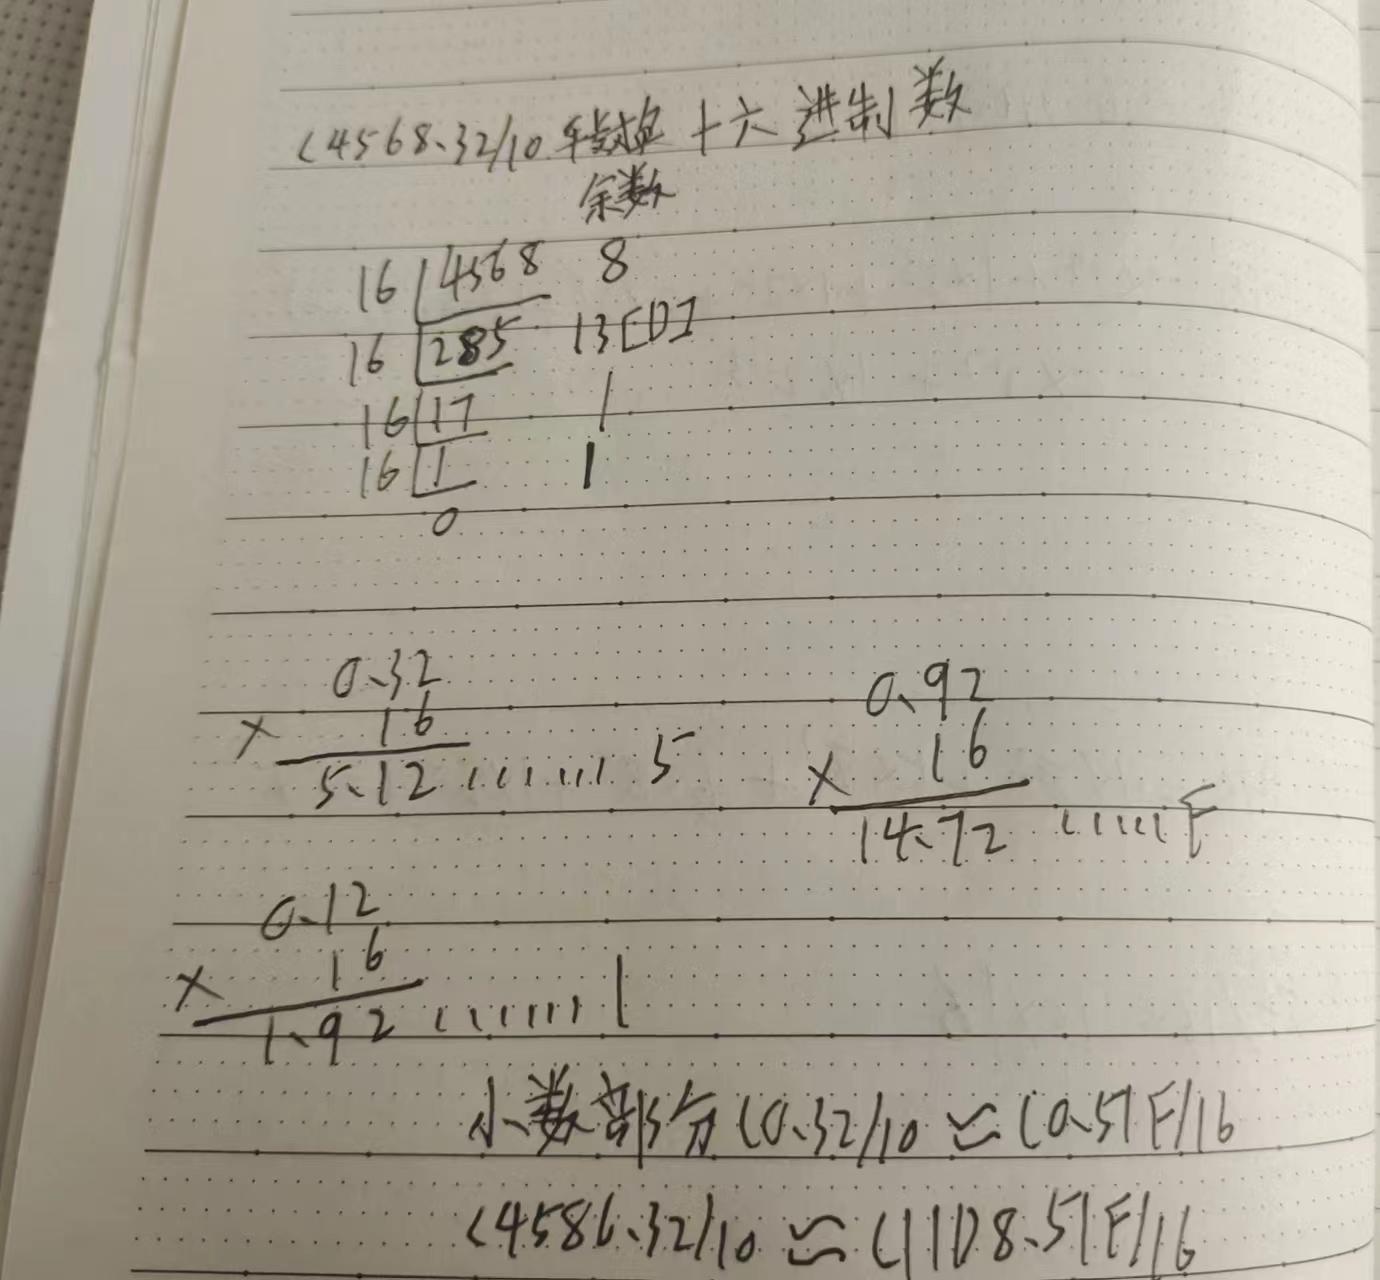 (4568.32)10 转换 十六进制数
余数
16 4568 8
16 285 13[D]
16 17 1
16 1 1
0
0.32
× 16
5.12 ....... 5
0.92
× 16
14.72 ..... F
0.12
× 16
1.92 ....... 1
小数部分(0.32)10 ≈ (0.51F)16
(4586.32)10 ≈ (11D8.51F)16